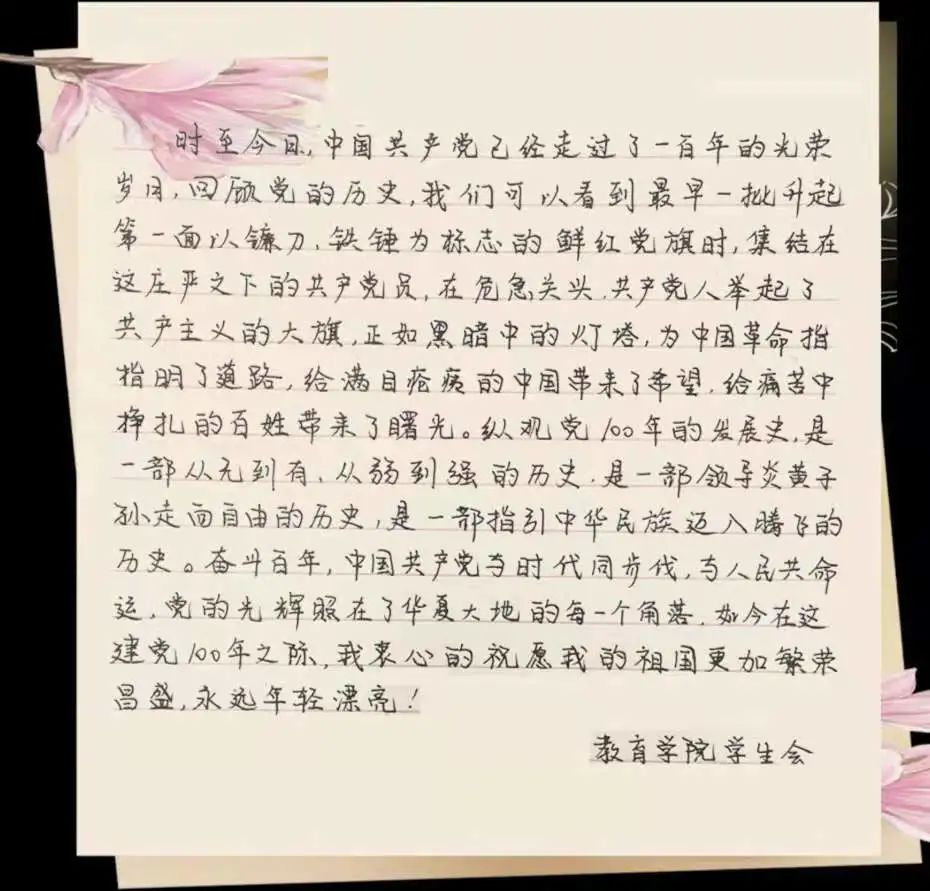 时至今日,中国共产党已经走过了一百年的光荣
岁月,回顾党的历史,我们可以看到最早一批升起
第一面以镰刀、铁锤为标志的鲜红党旗时,集结在
这庄严之下的共产党员,在危急关头,共产党人举起了
共产主义的大旗,正如黑暗中的灯塔,为中国革命指
指明了道路,给满目疮痍的中国带来了希望,给痛苦中
挣扎的百姓带来了曙光。纵观党100年的发展史,是
一部从无到有、从弱到强的历史,是一部领导炎黄子
孙走向自由的历史,是一部指引中华民族迈入腾飞的
历史。奋斗百年,中国共产党与时代同步伐,与人民共命
运,党的光辉照在了华夏大地的每一个角落,如今在这
建党100年之际,我衷心的祝愿我的祖国更加繁荣
昌盛,永远年轻漂亮!
教育学院学生会